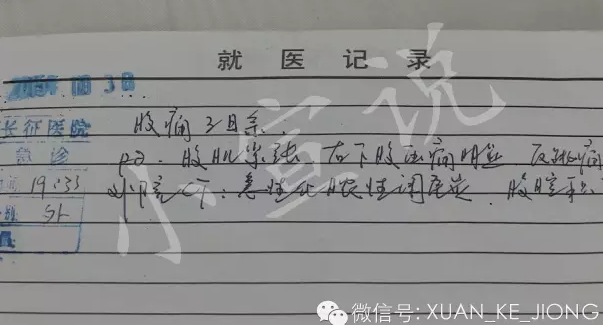 就医记录
长征医院
急诊
腹痛3日余.
19:35
PE. 腹肌紧张 右下腹压痛明显 反跳痛
外院CT:急性化脓性阑尾炎. 腹腔积
小宣说
微信号: XUAN_KE_JIONG